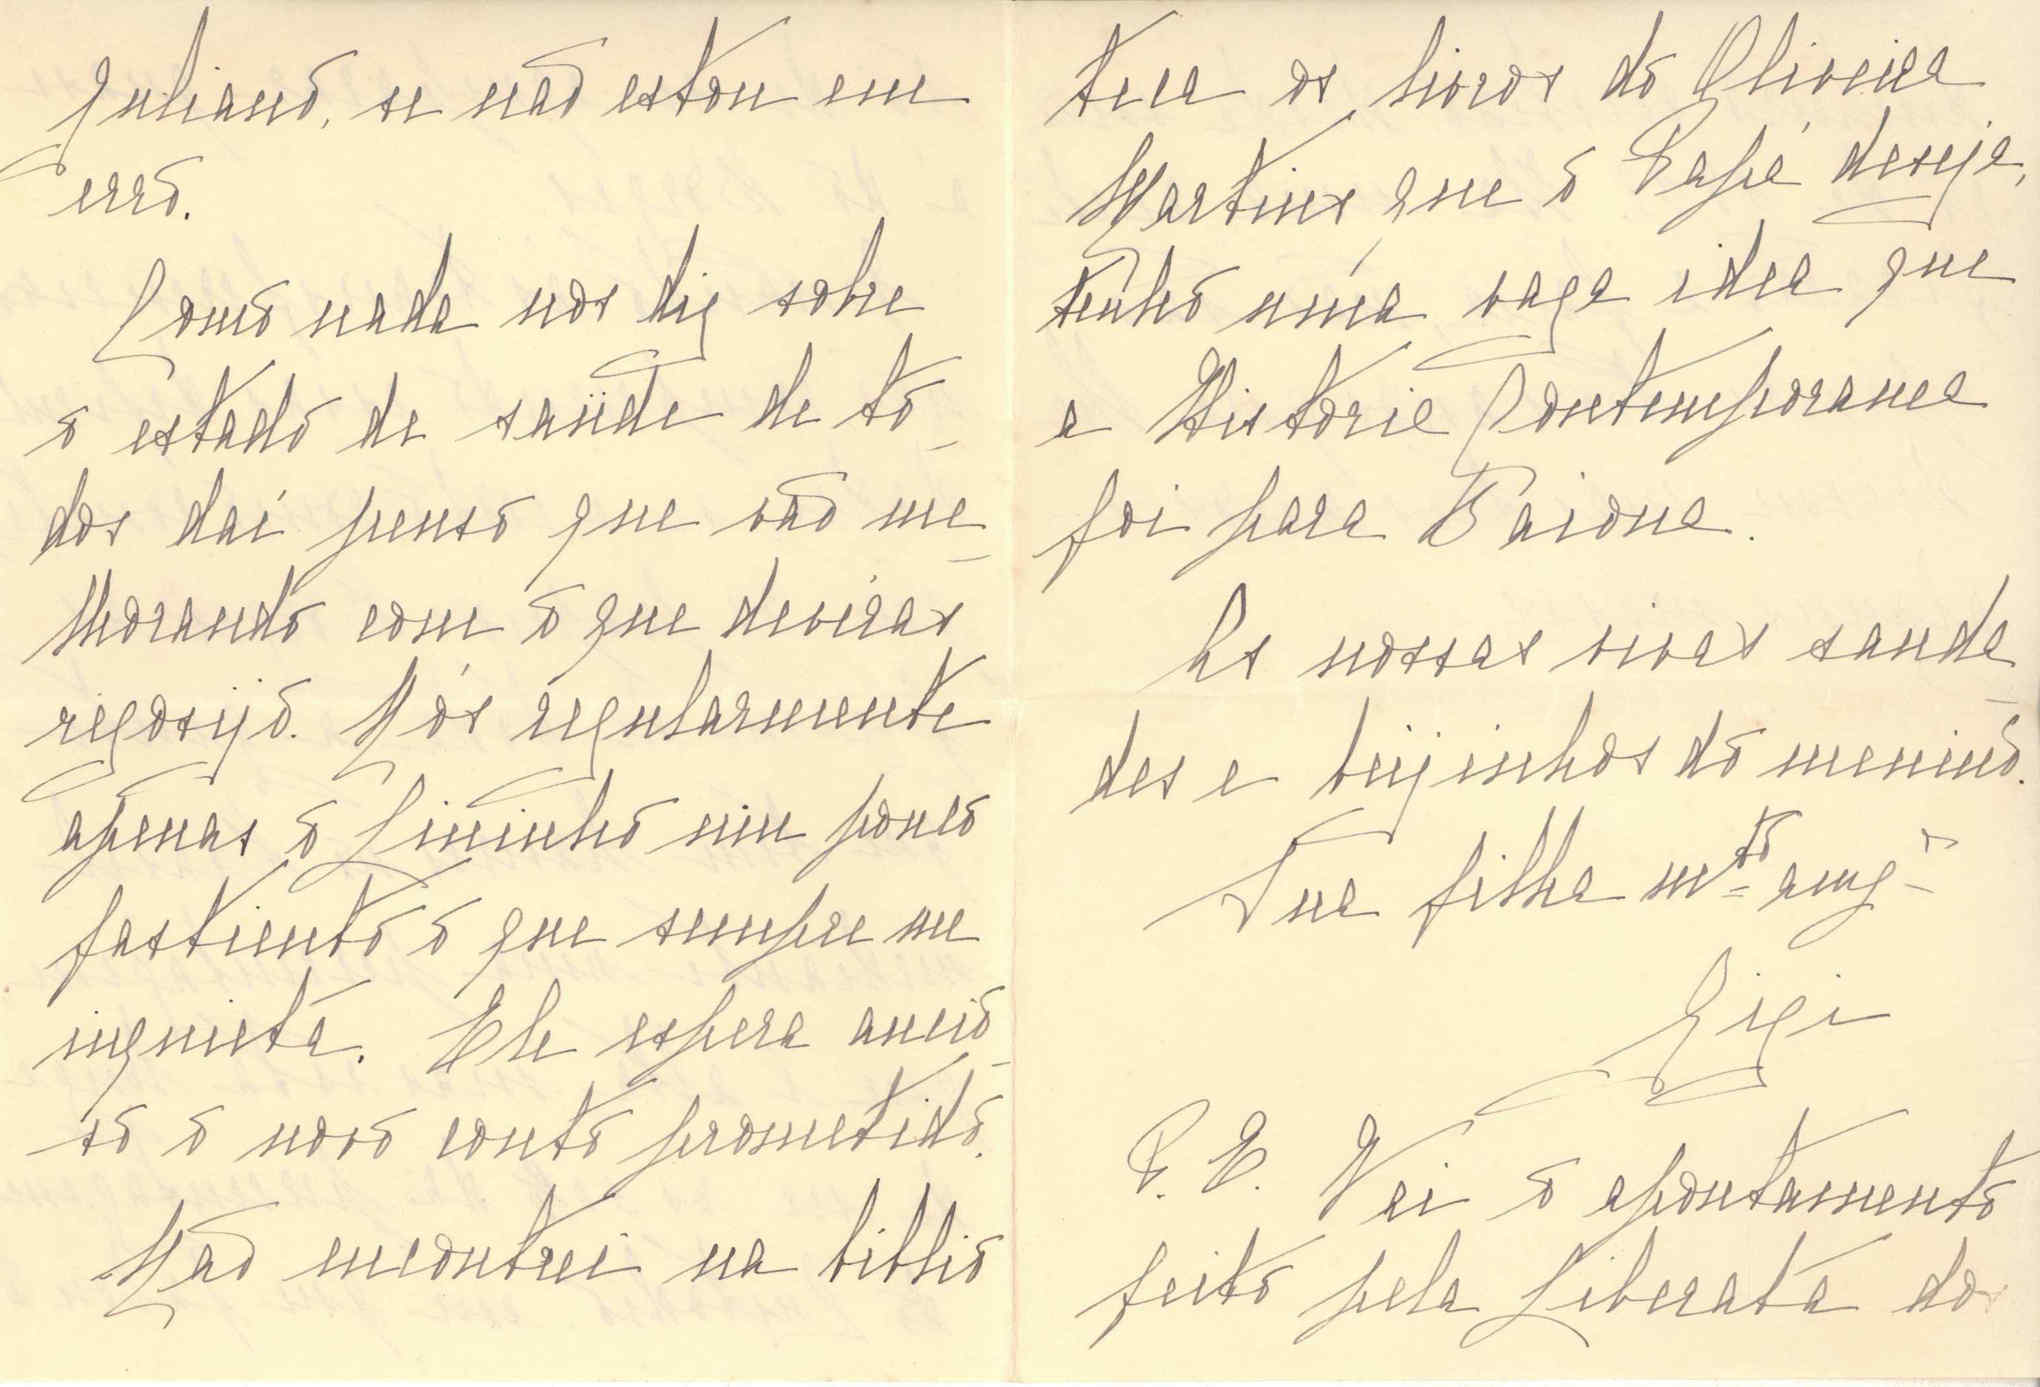 Juliano, se não estou em
erro.
Como nada nos diz sobre
o estado de saüde de to-
dos daí penso que vão me-
lhorando com o que deveras
regosijo. Nós regularmente
apenas o Lininho um pouco
fastiento o que sempre me
inquieta. Ele espera ancio-
so o novo conto prometido.
Não encontrei na biblio
teca os livros do Oliveira
Martins que o Papá deseja,
tenho uma vaga idea que
a Historia Contemporanea
foi para Baiona.
As nossas vivas sauda-
des e beijinhos do menino.
Tua filha mto amga
Gigi
P. E. Vai o apontamento
feito pela Liberata dos